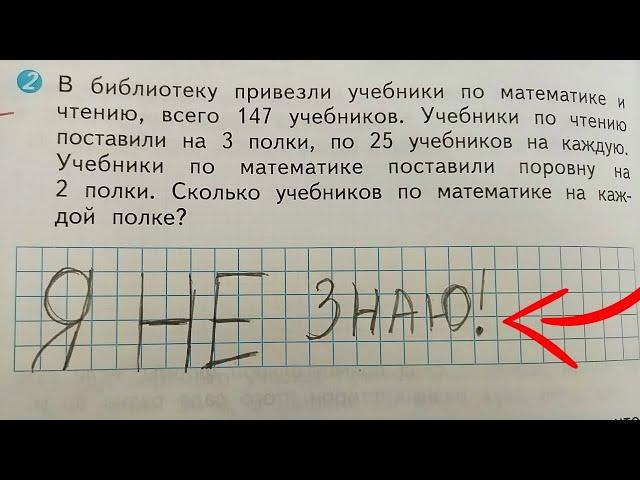 2 В библиотеку привезли учебники по математике и
чтению, всего 147 учебников. Учебники по чтению
поставили на 3 полки, по 25 учебников на каждую.
Учебники по математике поставили поровну на
2 полки. Сколько учебников по математике на каж-
дой полке?
Я НЕ ЗНАЮ!